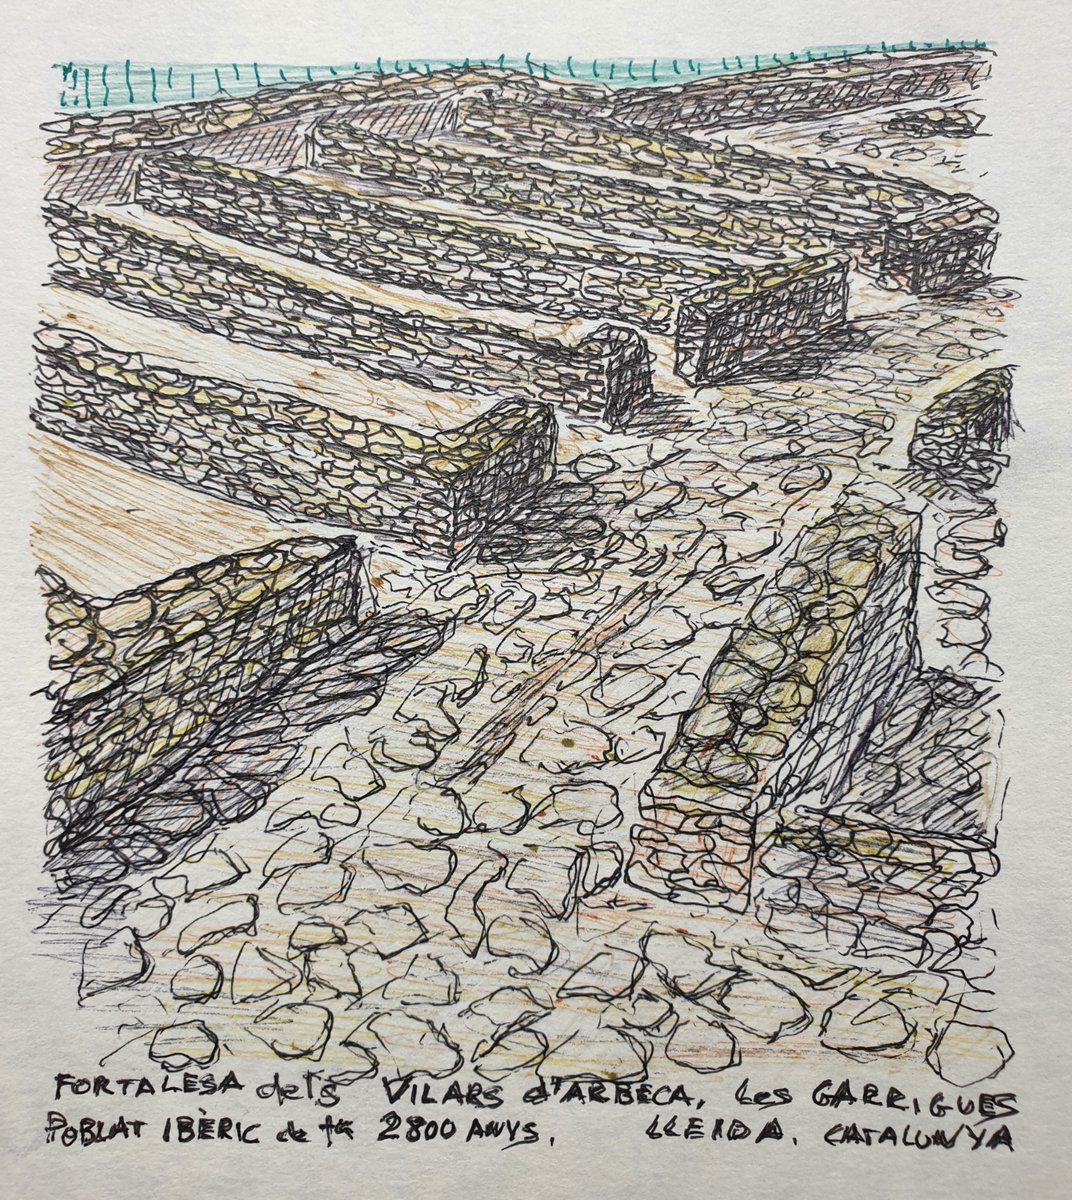 FORTALESA dels VILARS d'ARBECA, Les GARRIGUES
POBLAT IBÈRIC de fa 2800 ANYS. LLEIDA. CATALUNYA